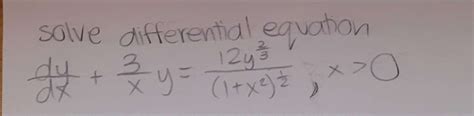 solve differential equation
dy/dx + 3/x y = 12y^(2/3)/(1+x²)^(1/2) , x>0